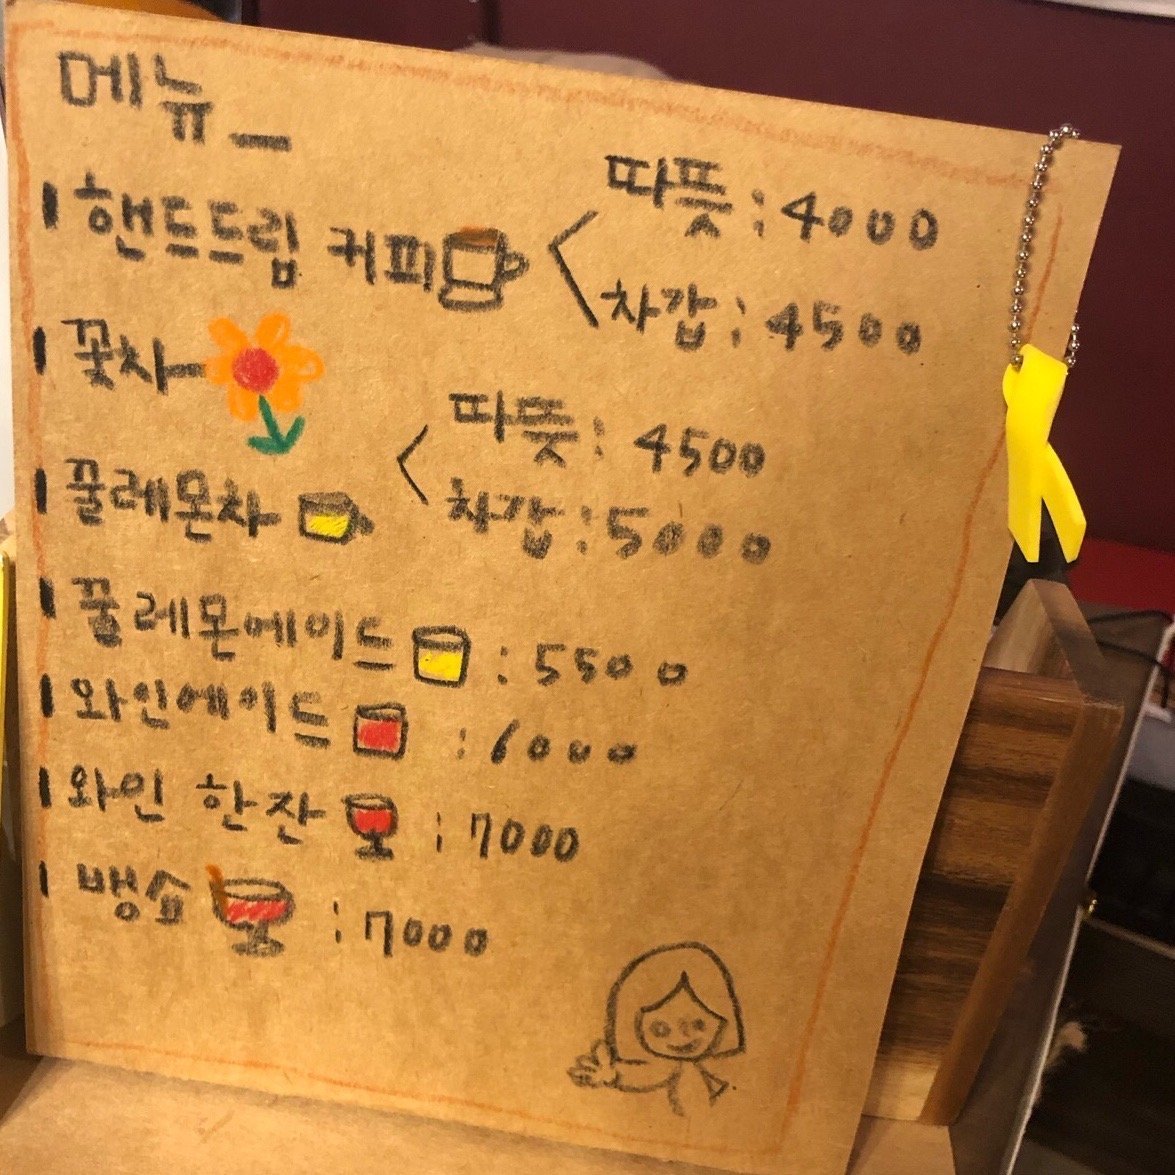 메뉴_
핸드드립 커피 < 따뜻 : 4000
차갑 : 4500
꽃차
꿀레몬차 < 따뜻 : 4500
차갑 : 5000
꿀레몬에이드 : 5500
와인에이드 : 6000
와인 한잔 : 7000
뱅쇼 : 7000